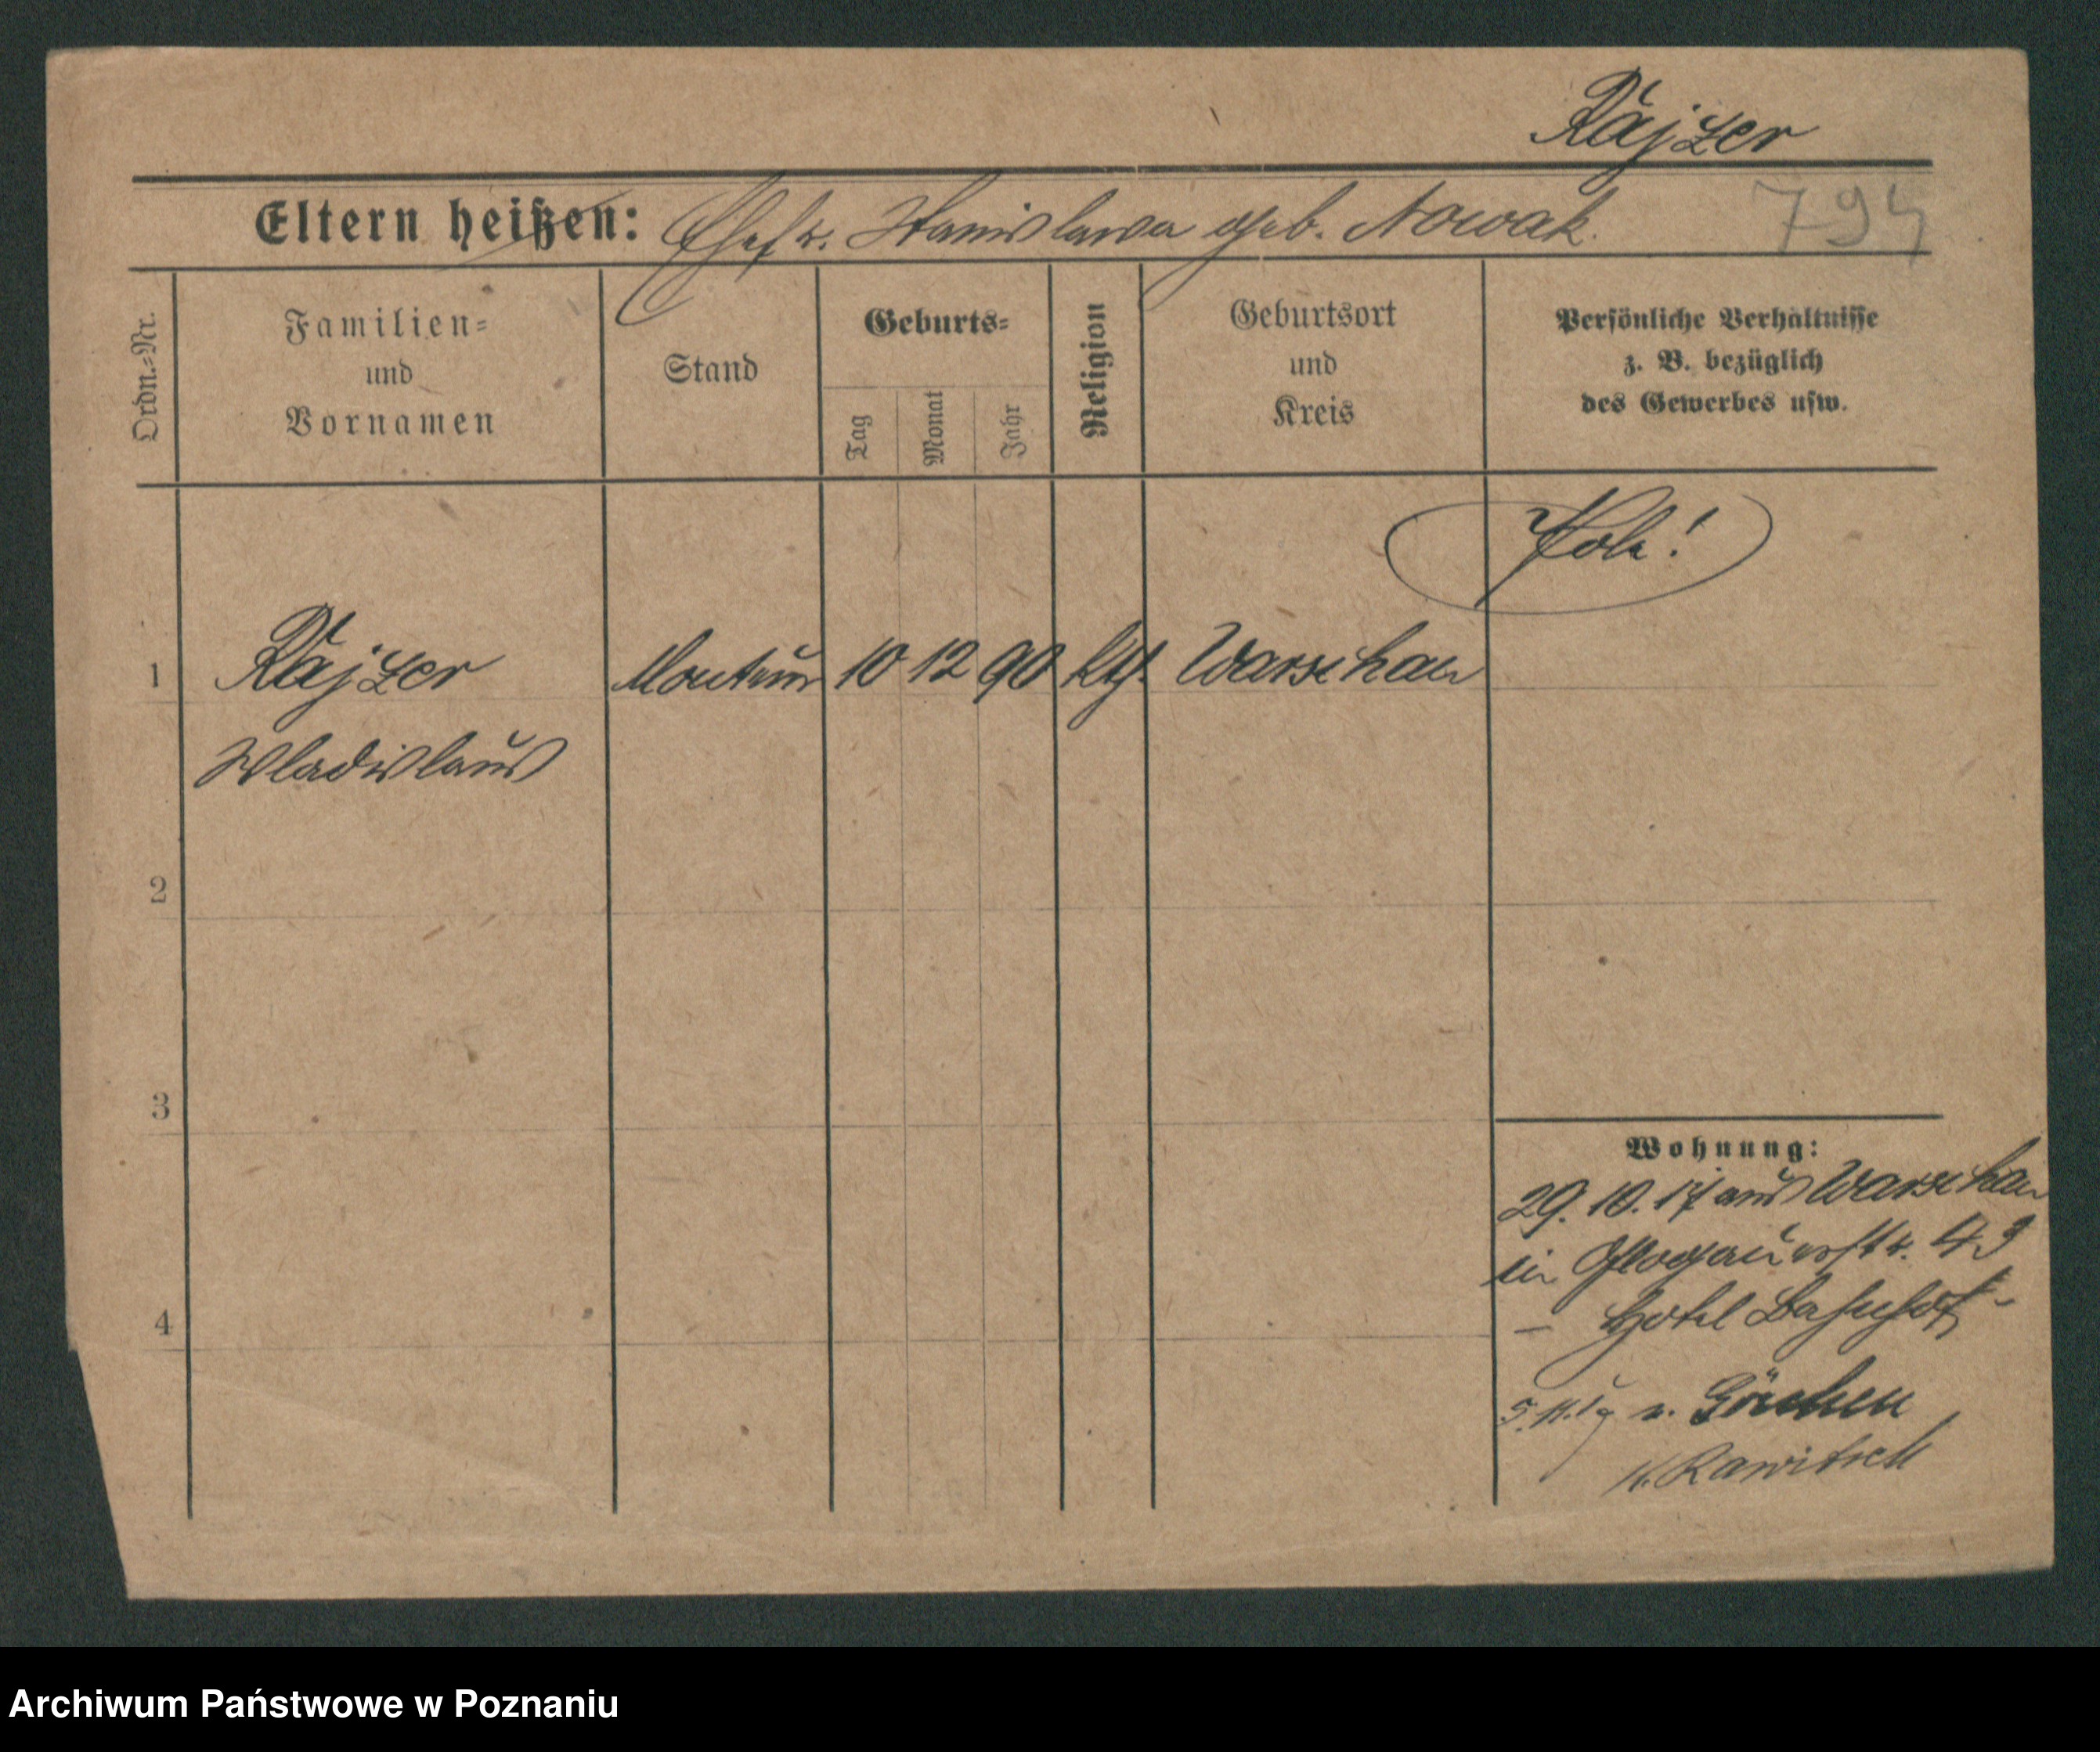 Rajzer
Eltern heißen: Ehefr. Stanislawa geb. Nowak.
794
Ordn.-Nr.
Familien-
und
Vornamen
Stand
Geburts-
Tag
Monat
Jahr
Religion
Geburtsort
und
Kreis
Persönliche Verhältnisse
z. B. bezüglich
des Gewerbes usw.
Pole!
1 Rajzer Monteur 10 12 90 kth. Warschau
Wladislaus
2
3
4
Wohnung:
29. 10. 17 aus Warschau
in Glogauerstr. 43
- Hotel Bahnhof -
5. 11. n. Görchen
K. Rawitsch
Archiwum Państwowe w Poznaniu